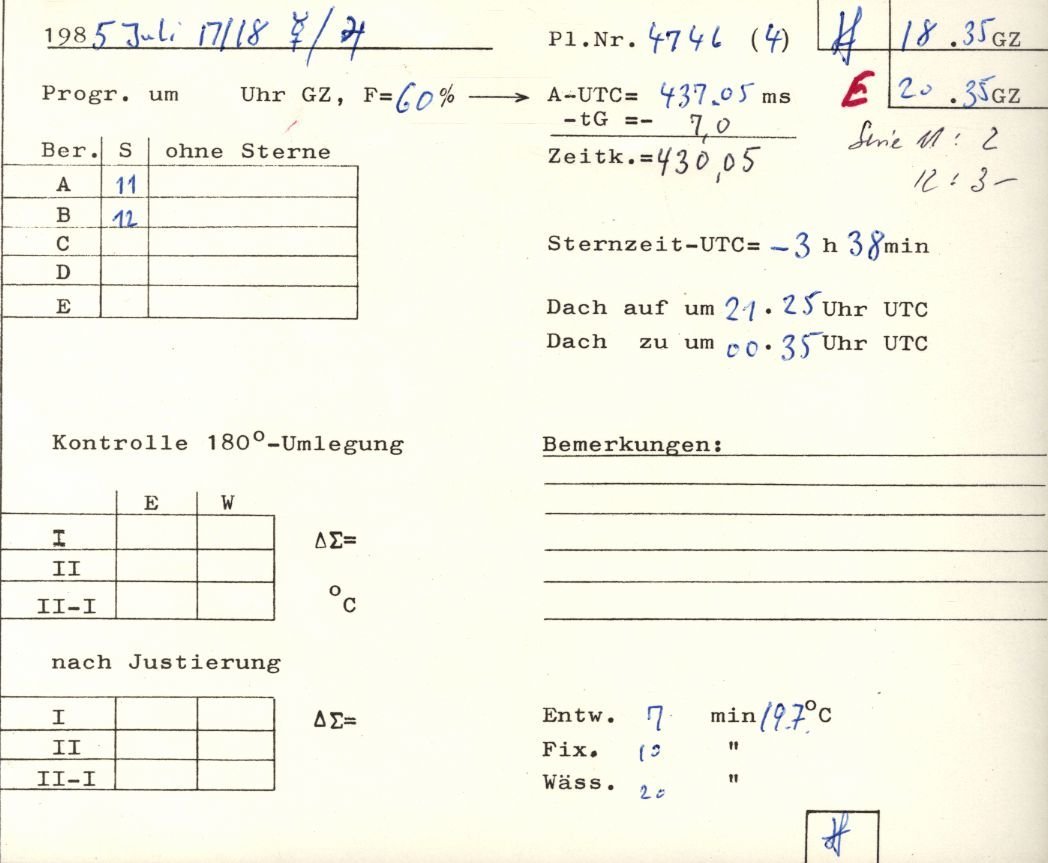 1985 Juli 17/18 ☿/♃
Pl.Nr. 4746 (4)
18.35 GZ
Progr. um Uhr GZ, F=60% → A-UTC= 437.05 ms
E 20.35 GZ
-tG =- 7,0
Zeitk.=430,05
Serie 11: 2
12: 3-
Ber. S ohne Sterne
A 11
B 12
C
D
E
Sternzeit-UTC= -3 h 38min
Dach auf um 21.25 Uhr UTC
Dach zu um 00.35 Uhr UTC
Kontrolle 180°-Umlegung
Bemerkungen:
E W
I ΔΣ=
II
II-I °C
nach Justierung
I ΔΣ=
II
II-I
Entw. 7 min/19.7.°C
Fix. 10 "
Wäss. 20 "